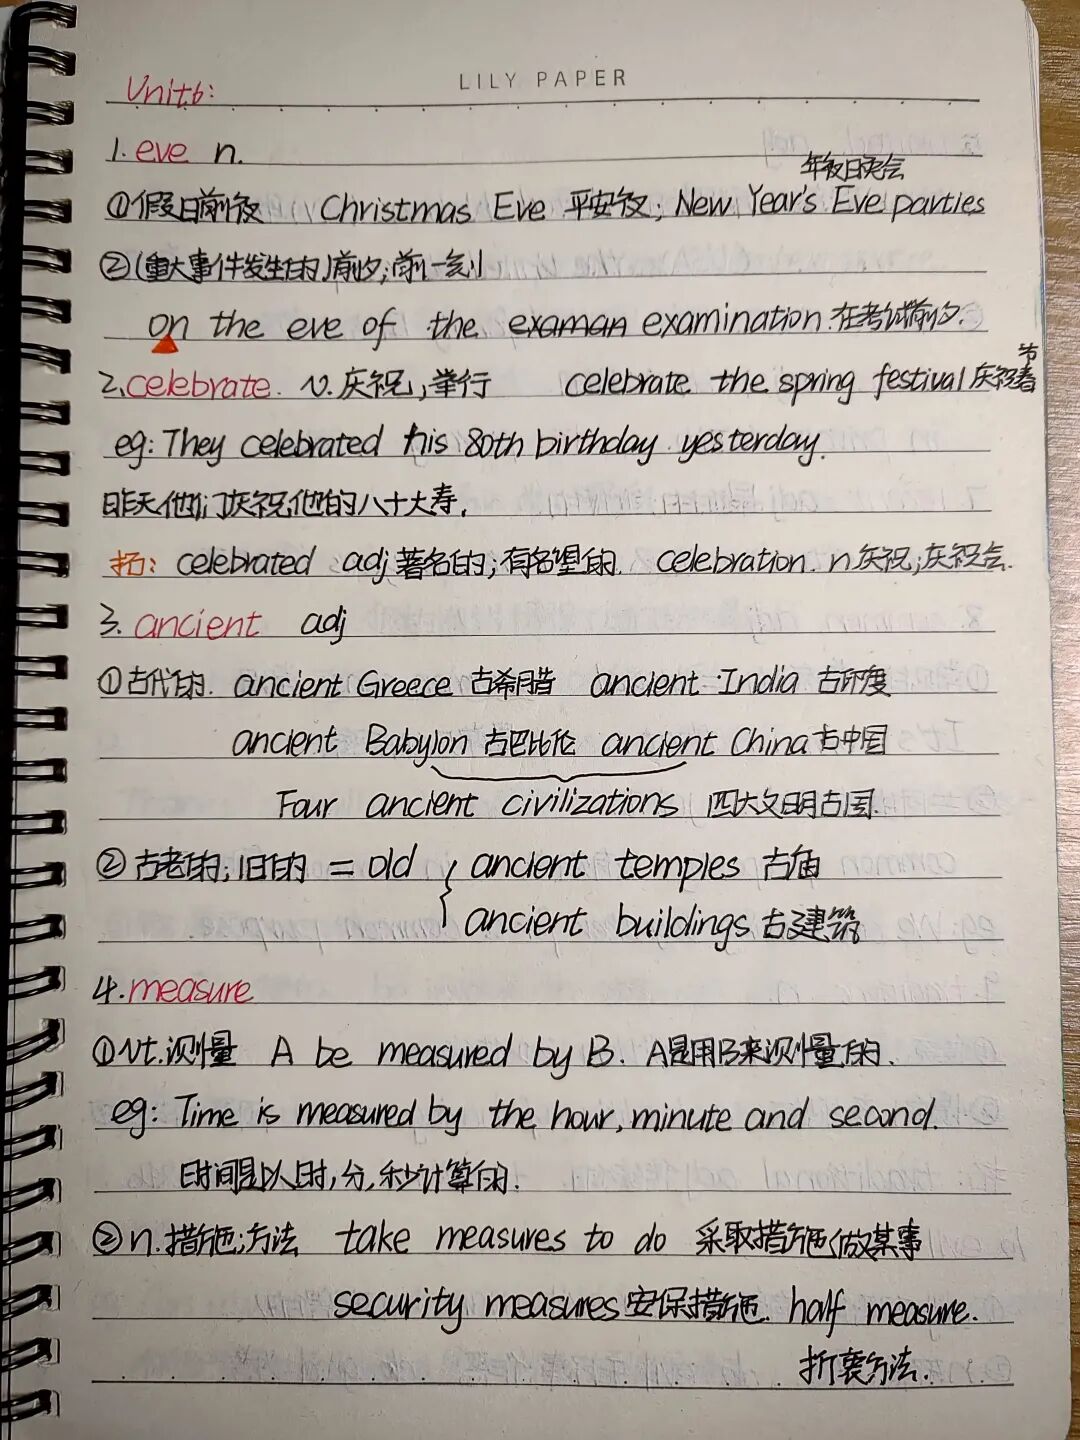 LILY PAPER
Unit6:
1. eve n.
年夜日晚会
①假日前夜 Christmas Eve 平安夜; New Year's Eve parties
②(重大事件发生的)前夕;前一刻
on the eve of the examan examination 在考试前夕.
2. celebrate. v.庆祝;举行 celebrate the spring festival 庆祝春节
eg: They celebrated his 80th birthday yesterday.
昨天他们庆祝他的八十大寿.
拓: celebrated adj著名的;有名望的. celebration. n庆祝;庆祝会.
3. ancient adj
①古代的. ancient Greece 古希腊 ancient India 古印度
ancient Babylon 古巴比伦 ancient China 古中国
Four ancient civilizations 四大文明古国.
②古老的;旧的 = old { ancient temples 古庙
ancient buildings 古建筑
4. measure
①vt.测量 A be measured by B. A是用B来测量的.
eg: Time is measured by the hour, minute and second.
时间是以时,分,秒计算的.
②n.措施;方法 take measures to do 采取措施做某事
security measures 安保措施. half measure.
折衷方法.